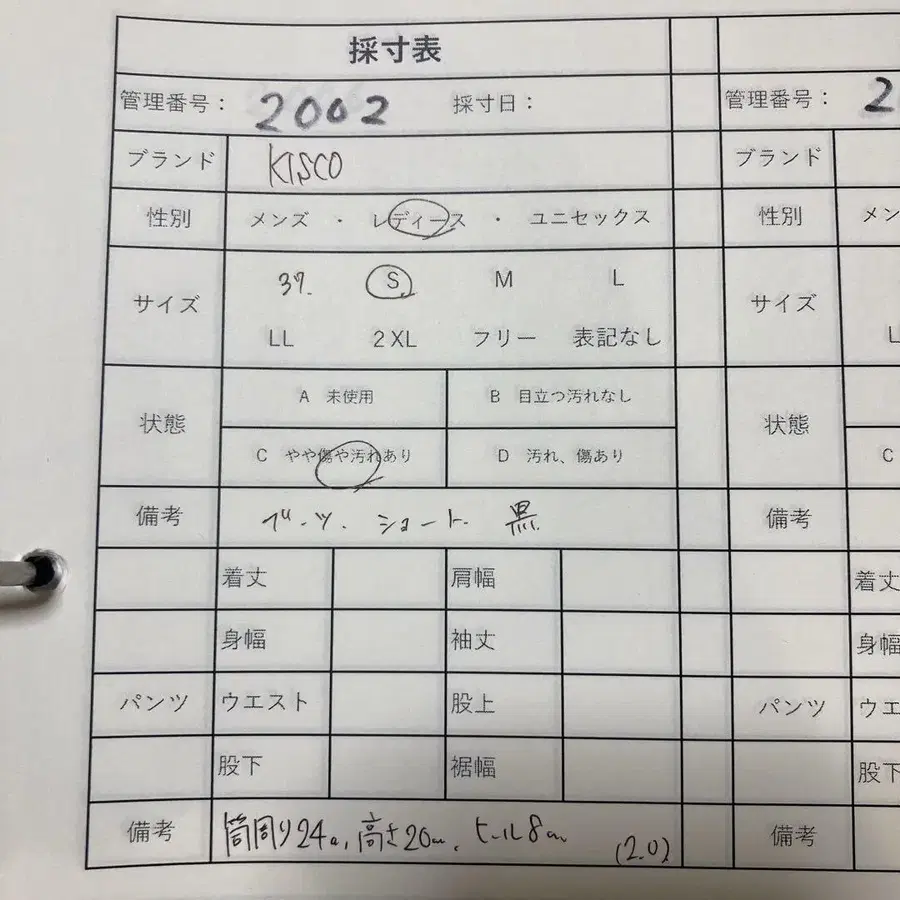 採寸表
管理番号： 2002 採寸日：
ブランド KISCO
性別 メンズ ・ レディース ・ ユニセックス
サイズ 37. S M L
LL 2XL フリー 表記なし
状態 A 未使用 B 目立つ汚れなし
C やや傷や汚れあり D 汚れ、傷あり
備考 ブーツ. ショート. 黒.
着丈 肩幅
身幅 袖丈
パンツ ウエスト 股上
股下 裾幅
備考 筒周り24cm, 高さ20cm, ヒール8cm (2.0)
管理番号： 2
ブランド
性別 メン
サイズ
L
状態
C
備考
着丈
身幅
パンツ ウエ
股下
備考